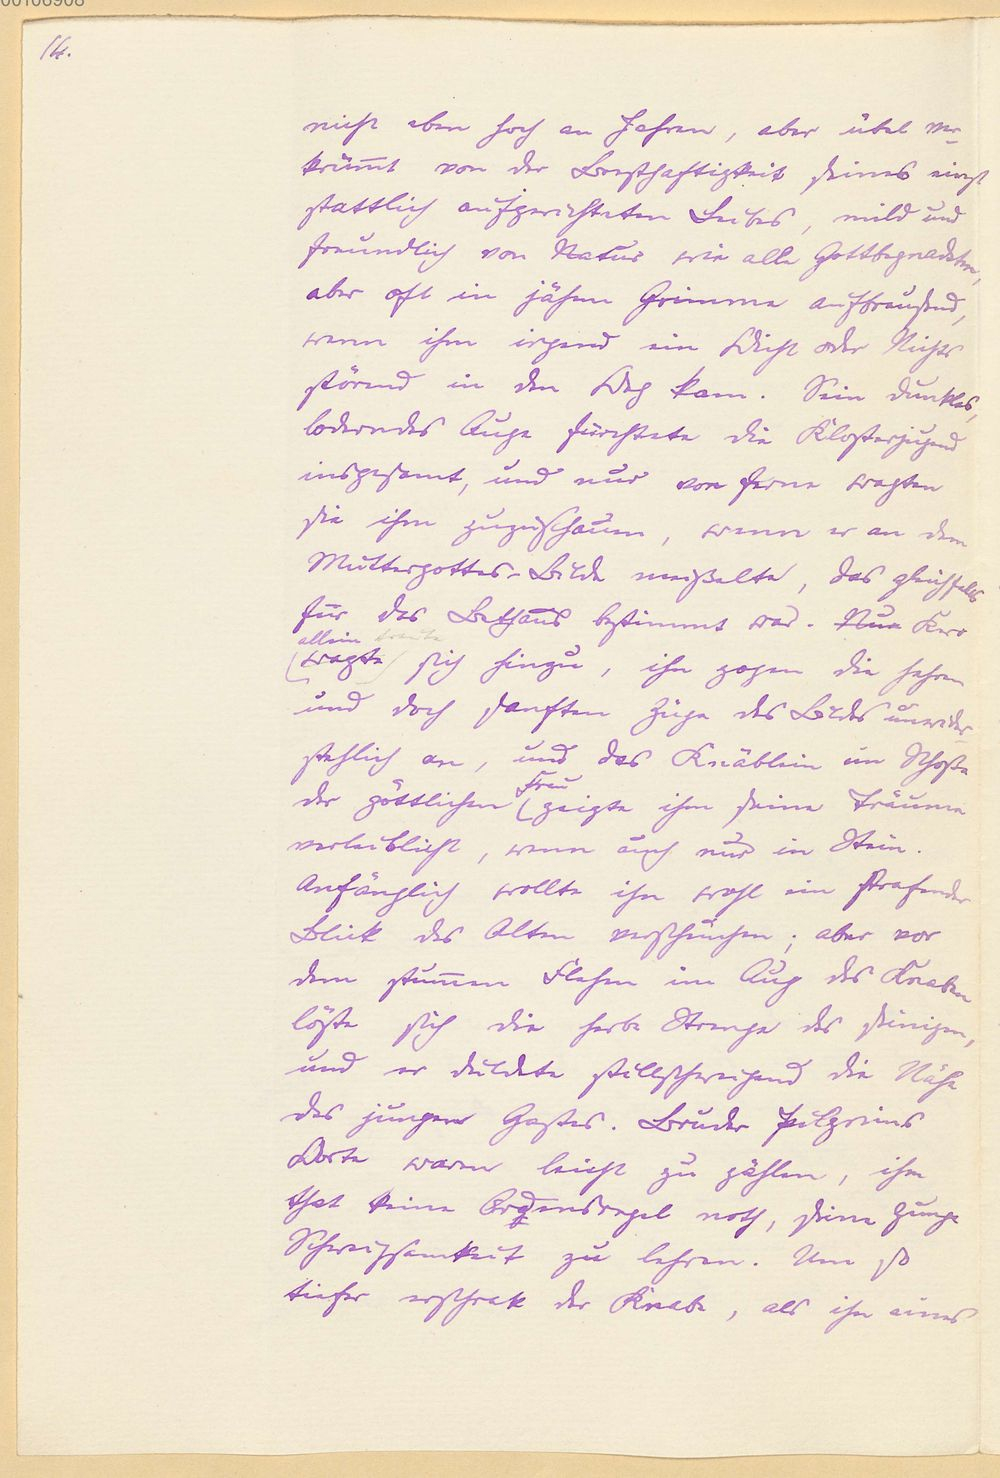 00106908
14.
nicht eben hoch an Jahren, aber übel ver-
krümt von der Bresthaftigkeit seines einst
stattlich aufgerichteten Leibes, mild und
freundlich von Natur wie alle Gottbegnadeten,
aber oft in jähem Grimme aufbrausend,
wenn ihm irgend ein Wicht oder Nichts
störend in den Weg kam. Sein dunkles,
loderndes Auge fürchtete die Klosterjugend
insgesamt, und nur von ferne wagten
sie ihm zuzuschauen, wenn er an dem
Muttergottes-Bilde meißelte, das gleichfalls
für das Bethaus bestimmt war. Nur Kero
allein traute
(wagte) sich hinzu, ihn zogen die hehren
und doch sanften Züge des Bildes unwider-
stehlich an, und das Knäblein im Schoße
Frau
der göttlichen (zeigte ihm seine Träume
verleiblicht, wenn auch nur in Stein.
Anfänglich wollte ihn wohl ein strafender
Blick des Alten verscheuchen; aber vor
dem stumen Flehen im Aug des Knaben
löste sich die herbe Strenge des seinigen,
und er duldete stillschweigend die Nähe
des jungen Gastes. Bruder Pilgrims
Worte waren leicht zu zählen, ihm
that keine Ordensregel noth, seine Zunge
Schweigsamkeit zu lehren. Um so
tiefer erschrak der Knabe, als ihn eines